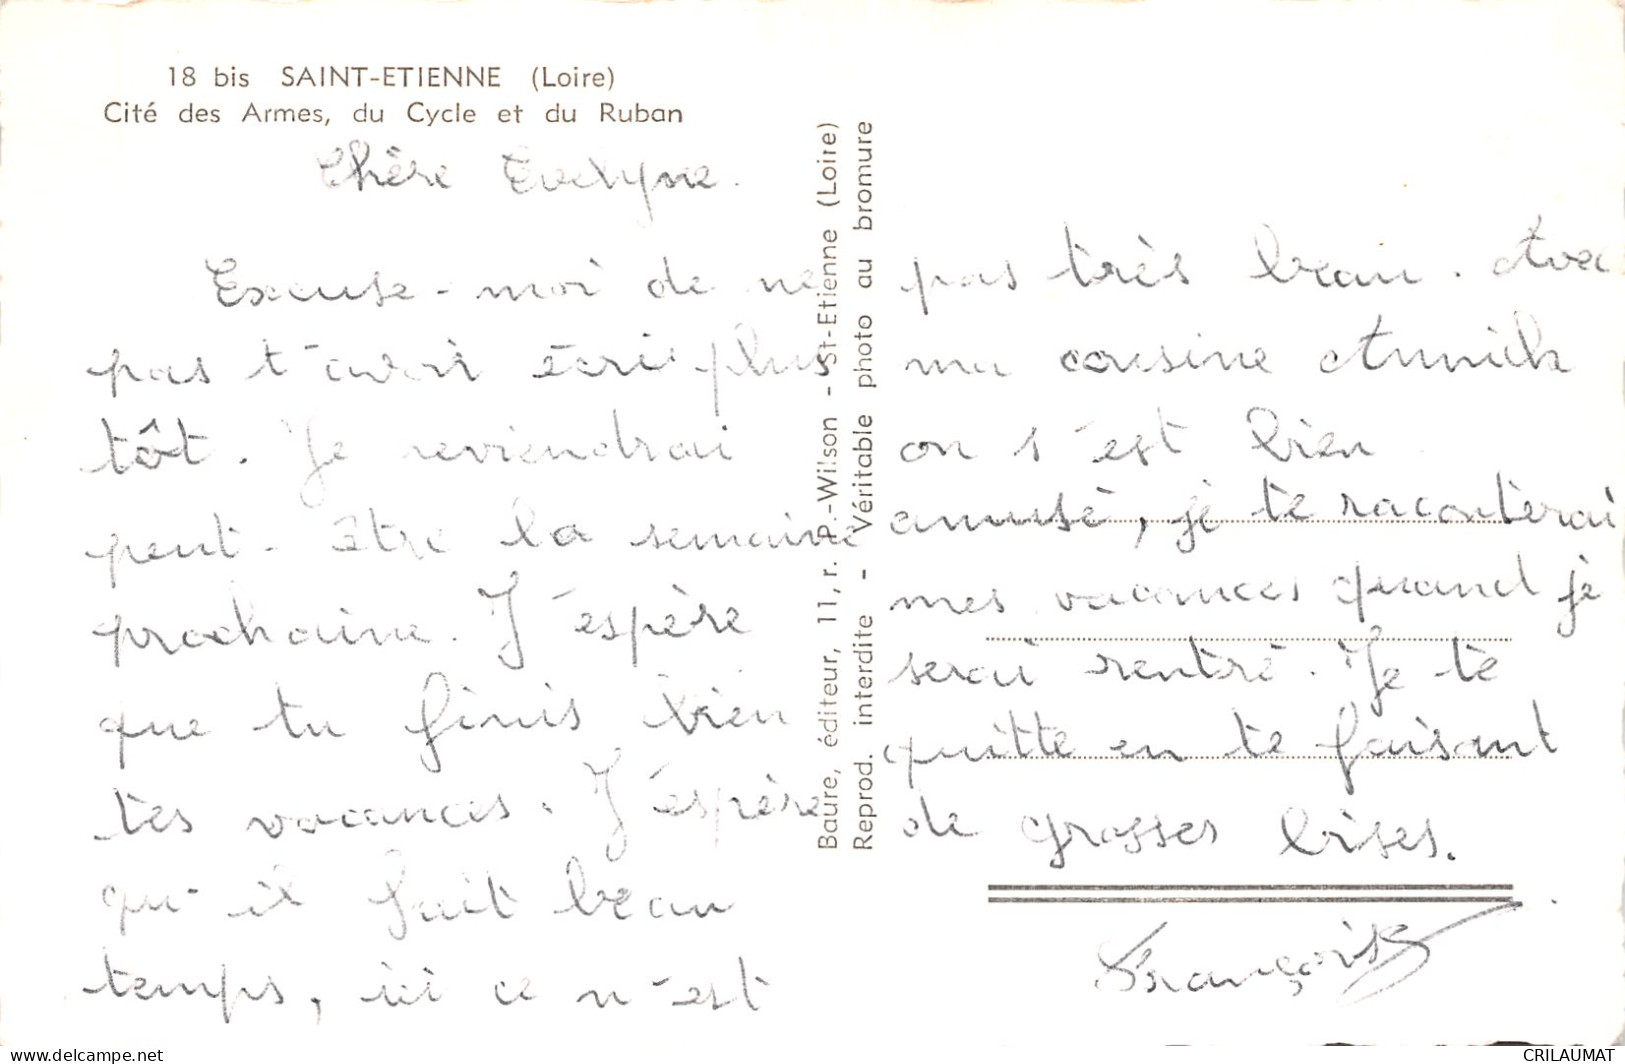 18 bis SAINT-ETIENNE (Loire)
Cité des Armes, du Cycle et du Ruban
Chère Evelyne.
Excuse-moi de ne
pas t'avoir écri plus
tôt. Je reviendrai
peut-être la semaine
prochaine. J'espère
que tu finis bien
tes vacances. J'espère
qu'il fait beau
temps, ici ce n'est
Baure, éditeur, 11, r. P.-Wilson - St-Etienne (Loire)
Reprod. interdite - Véritable photo au bromure
pas très beau. Avec
ma cousine Annick
on s'est bien
amusé, je te raconterai
mes vacances quand je
serai rentré. Je te
quitte en te faisant
de grosses bises.
Françoise
CRILAUMAT